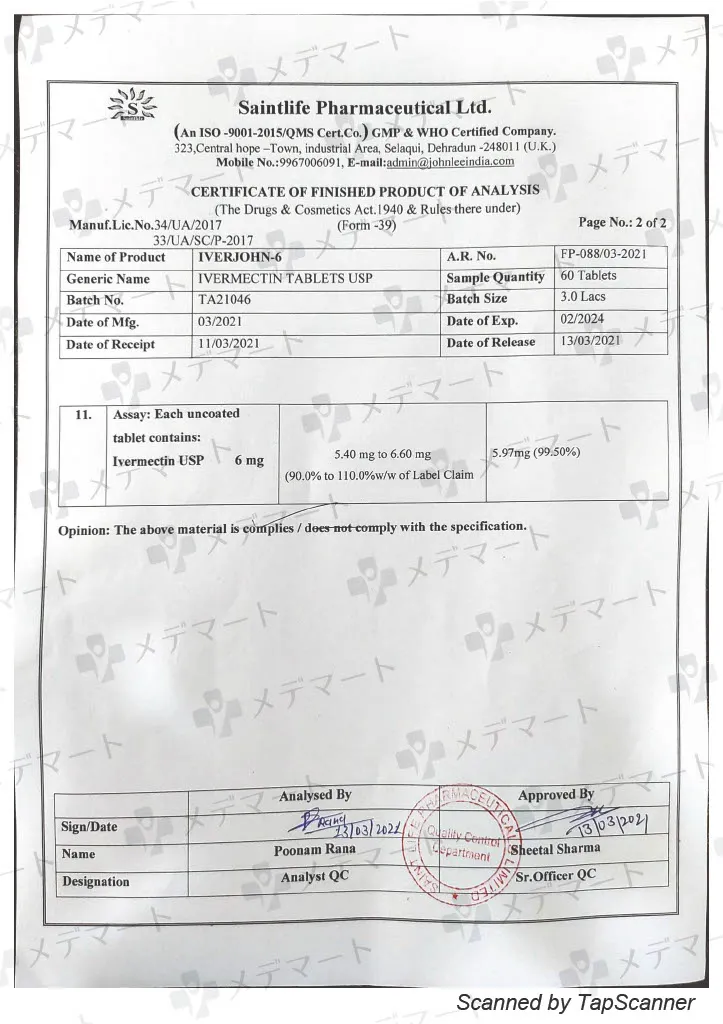 Saintlife Pharmaceutical Ltd.
(An ISO -9001-2015/QMS Cert.Co.) GMP & WHO Certified Company.
323,Central hope –Town, industrial Area, Selaqui, Dehradun -248011 (U.K.)
Mobile No.:9967006091, E-mail:admin@johnleeindia.com
CERTIFICATE OF FINISHED PRODUCT OF ANALYSIS
(The Drugs & Cosmetics Act.1940 & Rules there under)
Manuf.Lic.No.34/UA/2017 (Form -39) Page No.: 2 of 2
33/UA/SC/P-2017
Name of Product IVERJOHN-6 A.R. No. FP-088/03-2021
Generic Name IVERMECTIN TABLETS USP Sample Quantity 60 Tablets
Batch No. TA21046 Batch Size 3.0 Lacs
Date of Mfg. 03/2021 Date of Exp. 02/2024
Date of Receipt 11/03/2021 Date of Release 13/03/2021
11. Assay: Each uncoated
tablet contains:
Ivermectin USP 6 mg 5.40 mg to 6.60 mg 5.97mg (99.50%)
(90.0% to 110.0%w/w of Label Claim
Opinion: The above material is complies / does not comply with the specification.
Analysed By Approved By
Sign/Date 13/03/2021 13/03/2021
Name Poonam Rana Sheetal Sharma
Designation Analyst QC Sr.Officer QC
SAINT LIFE PHARMACEUTICAL LIMITED
Quality Control
Department
メデマート
Scanned by TapScanner